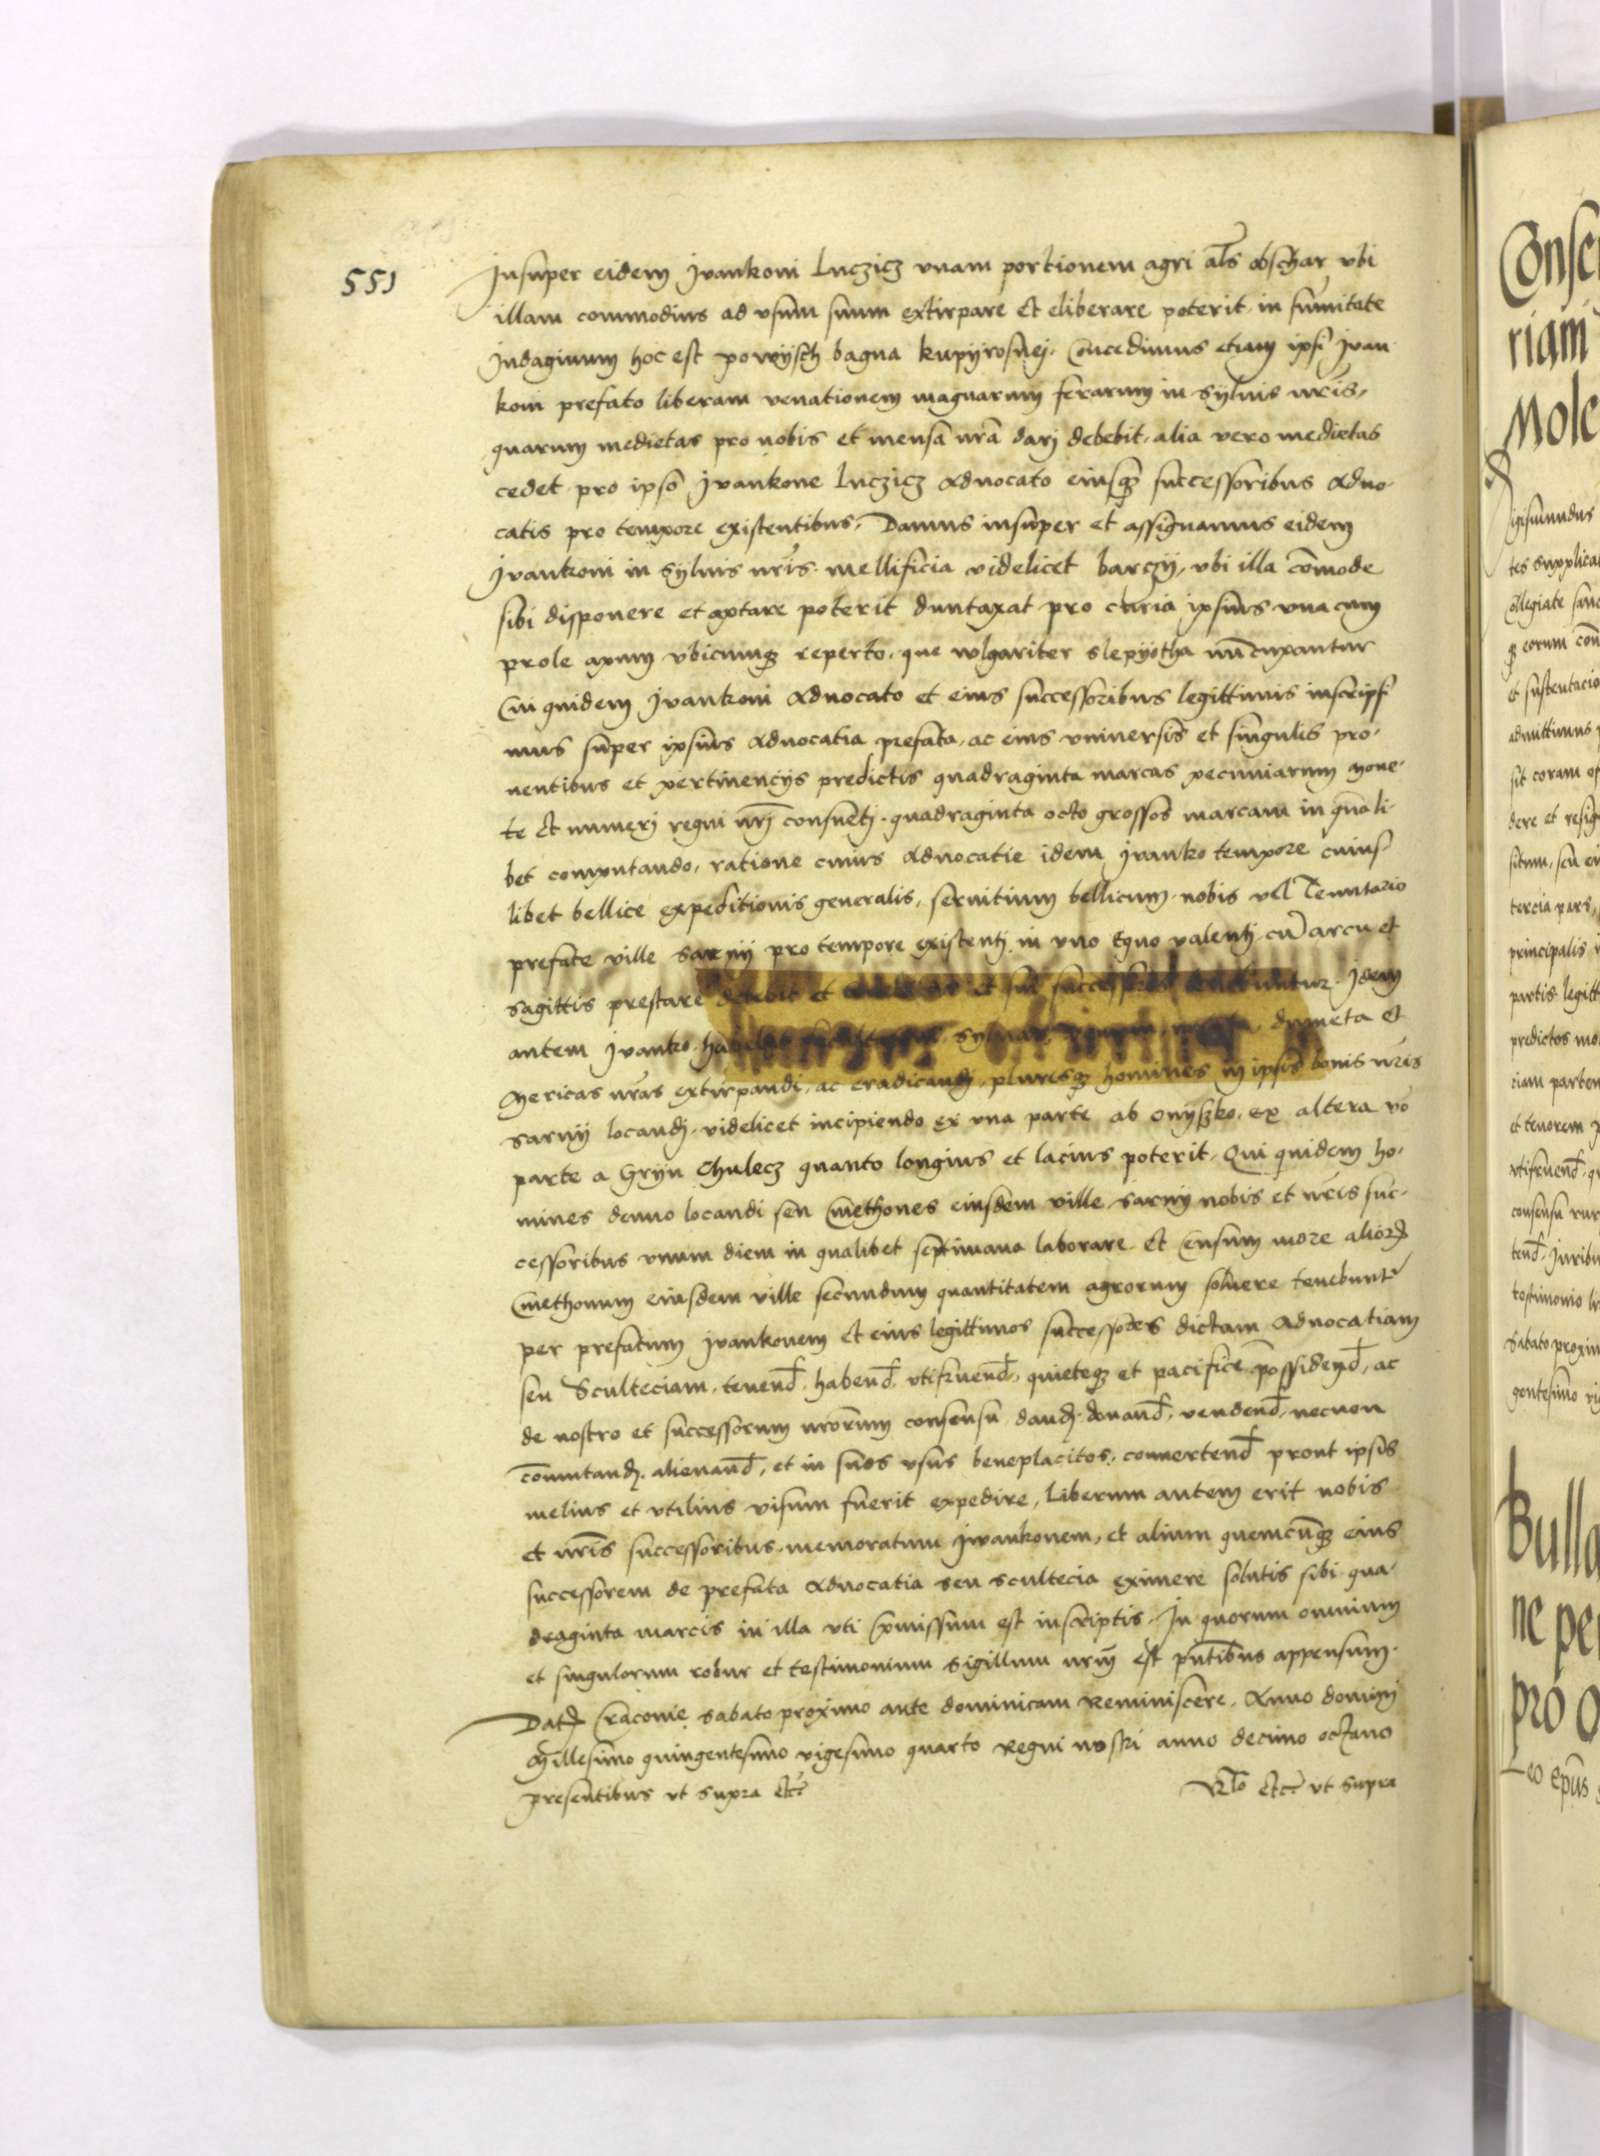 551
Insuper eidem Ivankoni Luczicz vnam portionem agri als obschar vbi
illam commodius ad vsum suum extirpare et eliberare poterit in sumitate
Indaginum hoc est powysch bagna kupyrosney. Concedimus etiam ipsi Ivan
koni prefato liberam venationem magnarum ferarum in syluis nris,
quarum medietas pro nobis et mensa nra dari debebit, alia vero medietas
cedet pro ipso Ivankone Luczicz Aduocato eiusq successoribus Aduo-
catis pro tempore existentibus. Damus insuper et assignamus eidem
Ivankoni in syluis nris mellificia videlicet barczy, vbi illa comode
sibi disponere et aptare poterit duntaxat pro curia ipsius vna cum
prole apum vbicumq reperto, que wlgariter slepyotha nuncupantur
Cui quidem Ivankoni Aduocato et eius successoribus legittimis inscripsi
mus super ipsius Aduocatia prefata, ac eius vniuersis et singulis pro-
uentibus et pertinencijs predictis quadraginta marcas pecuniarum mone-
te et numeri regni nri consueti, quadraginta octo grossos marcam in quali-
bet computando, ratione cuius Aduocatie idem Ivanko tempore cuius
libet bellice expeditionis generalis, seruitium bellicum nobis vel Tenutario
prefate ville Sarny pro tempore existenti in vno Equo valenti cu arcu et
sagittis prestare debebit et et sui successores Idem
autem Ivanko syluas dumeta et
Mericas nras extirpandi, ac eradicandi, pluresq homines in ipsis bonis nris
Sarny locandi, videlicet incipiendo ex vna parte ab Onyszko, ex altera vo
parte a Hryn Chulecz quanto longius et lacius poterit. Qui quidem ho-
mines denuo locandi seu Cmethones eiusdem ville Sarny nobis et nris suc-
cessoribus vnum diem in qualibet septimana laborare et Censum more alior
Cmethonum eiusdem ville secundum quantitatem agrorum soluere tenebunt
per prefatum Ivankonem et eius legittimos successores dictam Aduocatiam
seu Sculteciam, tenend, habend, vtifruend, quieteq et pacifice possidend, ac
de nostro et successorum nrorum consensu dand, donand, vendend, necnon
comutand, alienand, et in suos vsus beneplacitos conuertend prout ipsis
melius et vtilius visum fuerit expedire, Liberum autem erit nobis
et nris successoribus, memoratum Ivankonem, et alium quemcuq eius
successorem de prefata Aduocatia seu scultecia eximere solutis sibi qua-
draginta marcis in illa vti pmissum est inscriptis. In quorum omnium
et singulorum robur et testimonium Sigillum nrm est pntibus appensum.
Dat Cracouie sabato proximo ante dominicam Reminiscere. Anno domini
Millesimo quingentesimo vigesimo quarto Regni nostri anno decimo octauo
presentibus vt supra etc Rlo etc vt supra